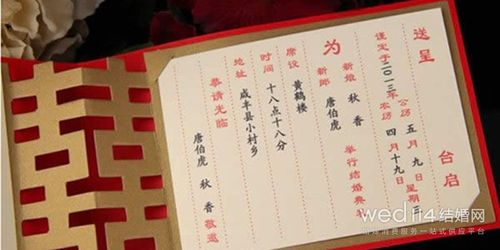 送呈 台启
谨定于二〇一三年 公历 五月九日 星期
农历 四月十九日
为 新娘 秋香 举行结婚典礼
新郎 唐伯虎
席设 黄鹤楼
时间 十八点十八分
地址 咸丰县小村乡
恭请光临
唐伯虎 秋香 敬邀
wed114结婚网
消费服务一站式供应平台